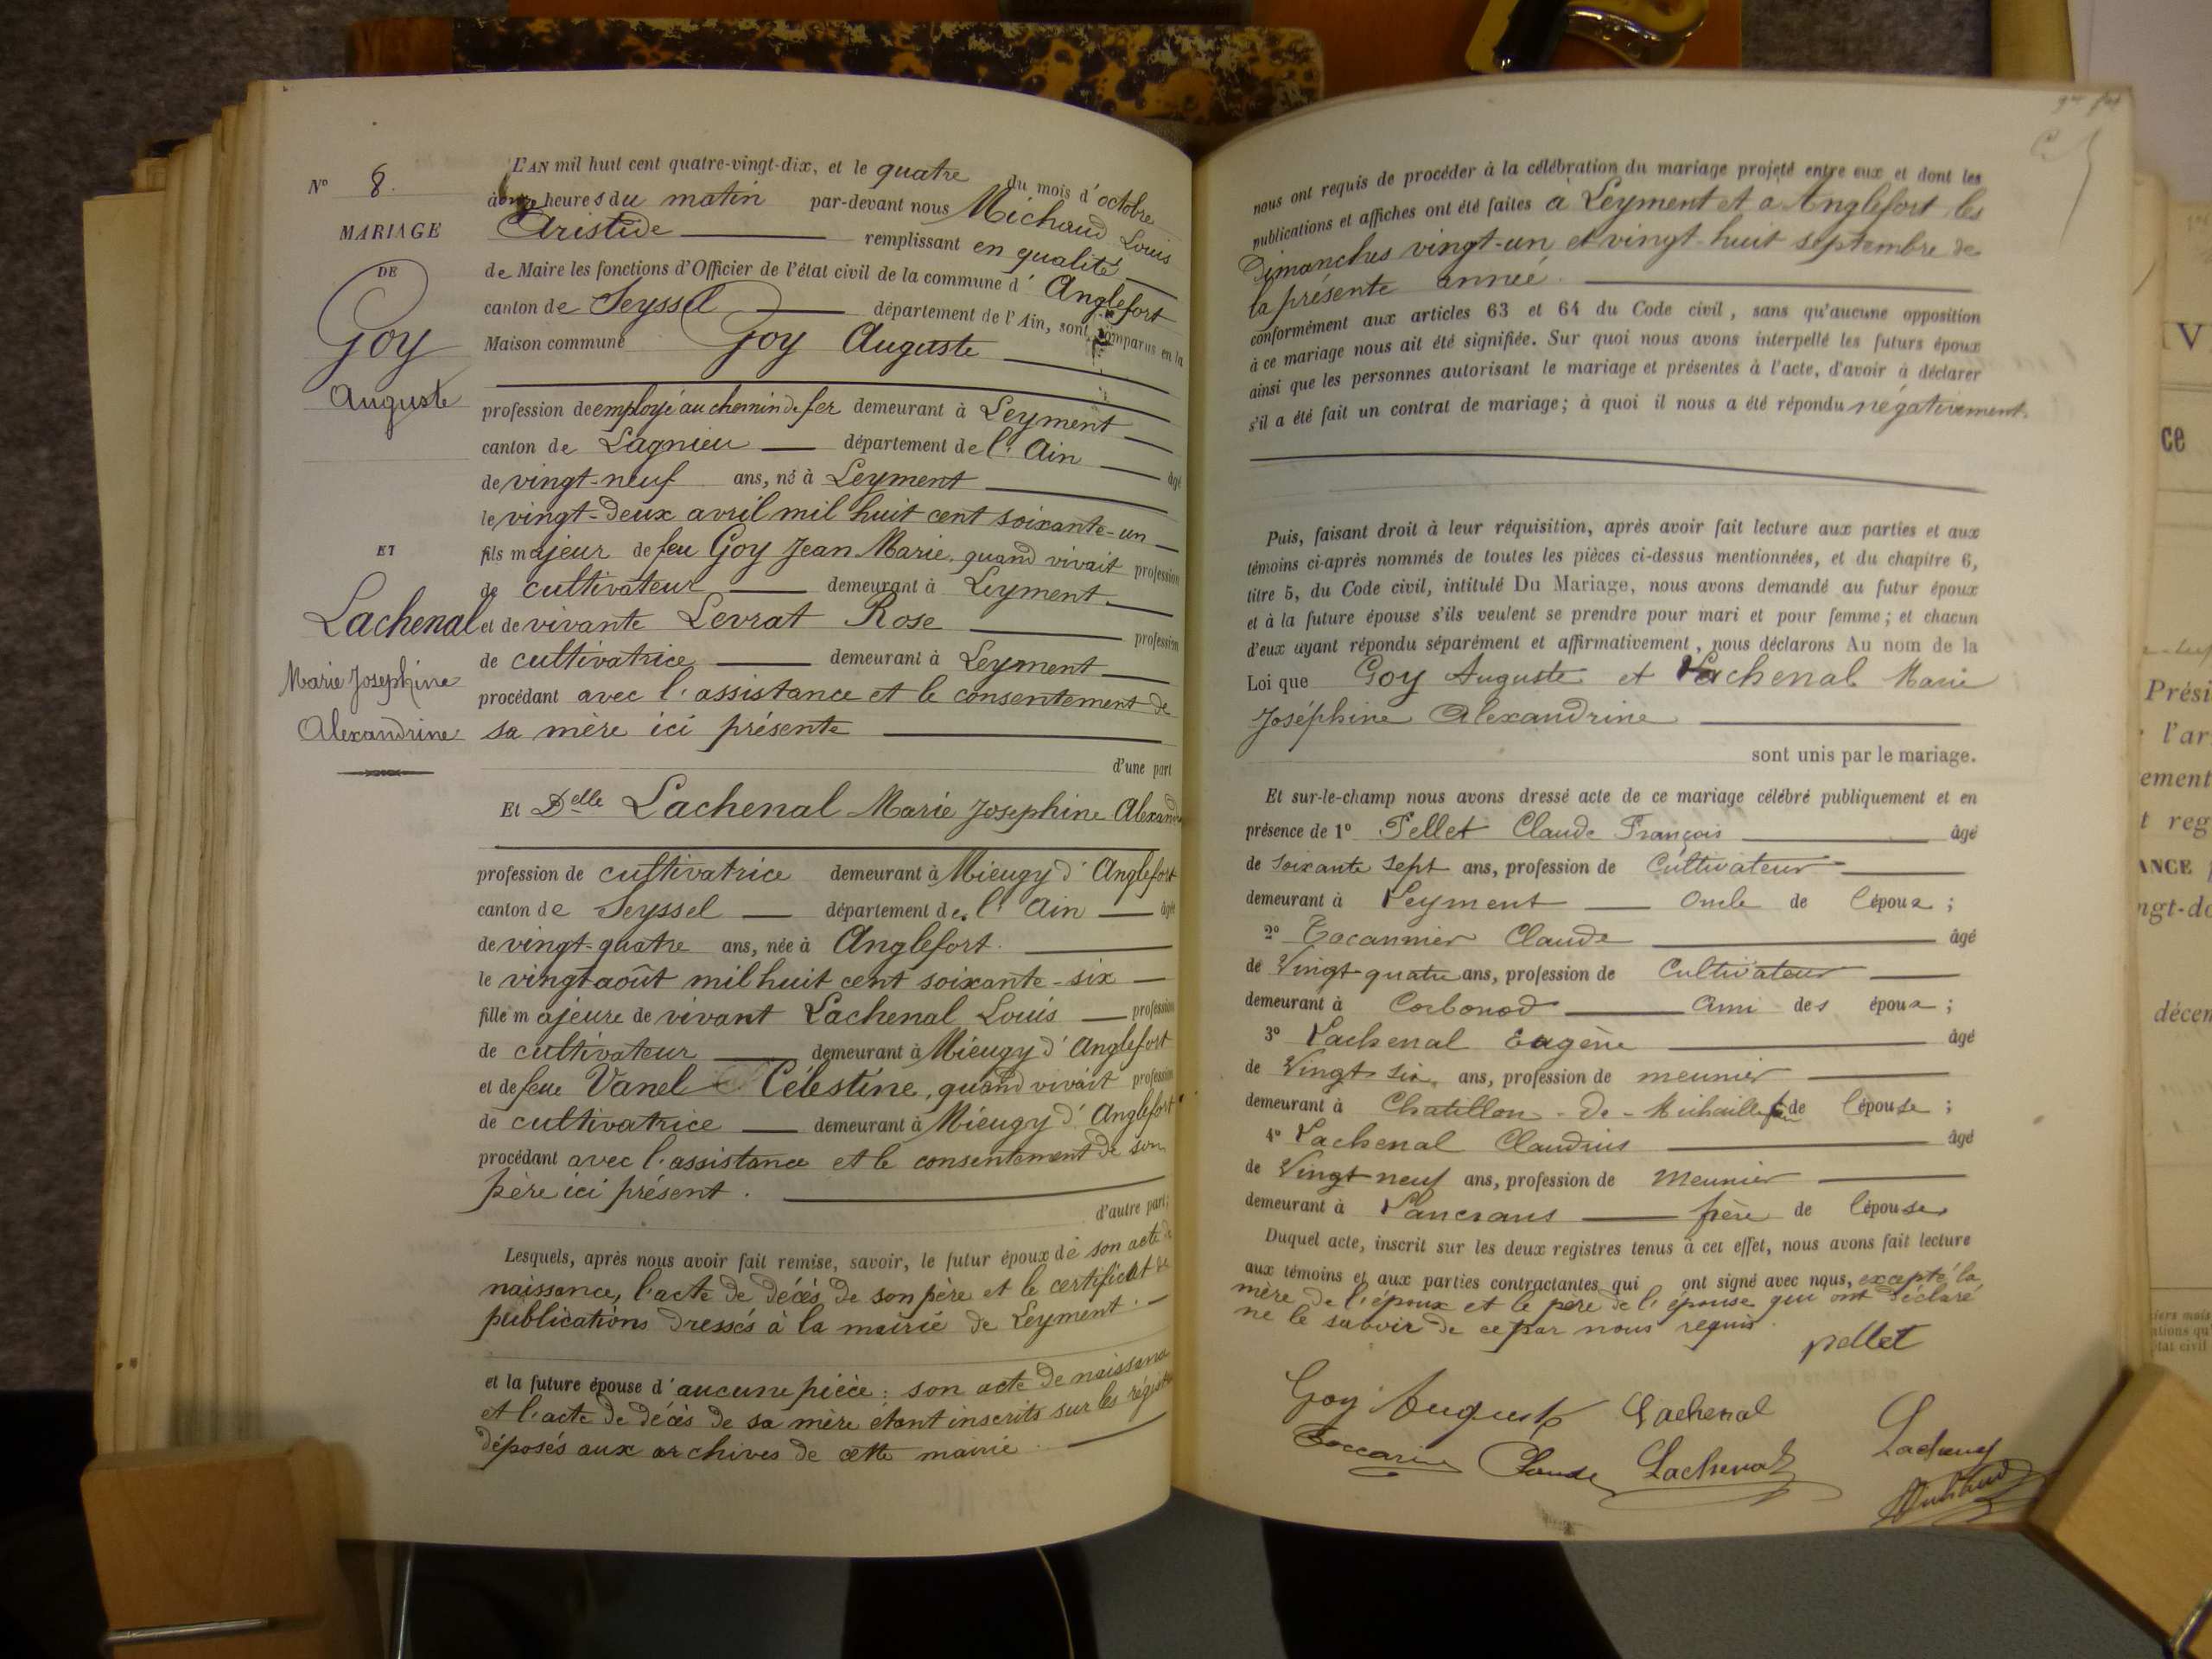 N° 8.
MARIAGE
DE
Goy
Auguste
ET
Lachenal
Marie Josephine
Alexandrine
L'AN mil huit cent quatre-vingt-dix, et le quatre du mois d'octobre
à onze heures du matin par-devant nous Michaud Louis
Aristide remplissant en qualité
de Maire les fonctions d'Officier de l'état civil de la commune d'Anglefort
canton de Seyssel département de l'Ain, sont comparus en la
Maison commune Goy Auguste
profession de employé au chemin de fer demeurant à Leyment
canton de Lagnieu département de l'Ain âgé
de vingt-neuf ans, né à Leyment
le vingt-deux avril mil huit cent soixante-un
fils majeur de feu Goy Jean Marie, quand vivait profession
de cultivateur demeurant à Leyment.
et de vivante Levrat Rose profession
de cultivatrice demeurant à Leyment
procédant avec l'assistance et le consentement de
sa mère ici présente
d'une part
Et Delle Lachenal Marie Josephine Alexand
profession de cultivatrice demeurant à Mieugy d'Anglefort
canton de Seyssel département de l'Ain âgée
de vingt-quatre ans, née à Anglefort.
le vingt août mil huit cent soixante-six
fille majeure de vivant Lachenal Louis profession
de cultivateur demeurant à Mieugy d'Anglefort
et de feue Vanel Célestine, quand vivait profession
de cultivatrice demeurant à Mieugy d'Anglefort
procédant avec l'assistance et le consentement de son
père ici présent.
d'autre part;
Lesquels, après nous avoir fait remise, savoir, le futur époux de son acte de
naissance, l'acte de décès de son père et le certificat de
publications dressés à la mairie de Leyment.
et la future épouse d'aucune pièce : son acte de naissance
et l'acte de décès de sa mère étant inscrits sur les régistres
déposés aux archives de cette mairie.
nous ont requis de procéder à la célébration du mariage projeté entre eux et dont les
publications et affiches ont été faites à Leyment et a Anglefort les
Dimanches vingt-un et vingt-huit septembre de
la présente année.
conformément aux articles 63 et 64 du Code civil, sans qu'aucune opposition
à ce mariage nous ait été signifiée. Sur quoi nous avons interpellé les futurs époux
ainsi que les personnes autorisant le mariage et présentes à l'acte, d'avoir à déclarer
s'il a été fait un contrat de mariage; à quoi il nous a été répondu négativement.
Puis, faisant droit à leur réquisition, après avoir fait lecture aux parties et aux
témoins ci-après nommés de toutes les pièces ci-dessus mentionnées, et du chapitre 6,
titre 5, du Code civil, intitulé Du Mariage, nous avons demandé au futur époux
et à la future épouse s'ils veulent se prendre pour mari et pour femme; et chacun
d'eux ayant répondu séparément et affirmativement, nous déclarons Au nom de la
Loi que Goy Auguste et Lachenal Marie
Joséphine Alexandrine
sont unis par le mariage.
Et sur-le-champ nous avons dressé acte de ce mariage célébré publiquement et en
présence de 1° Pellet Claude François âgé
de soixante sept ans, profession de Cultivateur
demeurant à Leyment Oncle de l'époux;
2° Bocannier Claude âgé
de Vingt-quatre ans, profession de Cultivateur
demeurant à Corbonod Ami des époux;
3° Lachenal Eugène âgé
de Vingt six ans, profession de meunier
demeurant à Chatillon-De-Michaille de l'épouse;
4° Lachenal Claudius âgé
de Vingt neuf ans, profession de Meunier
demeurant à Lancrans frère de l'épouse.
Duquel acte, inscrit sur les deux registres tenus à cet effet, nous avons fait lecture
aux témoins et aux parties contractantes qui ont signé avec nous, excepté la
mère de l'époux et le père de l'épouse qui ont déclaré
ne le savoir de ce par nous requis.
pellet
Goy Auguste Lachenal
Claude Lachenal
IV
ce
Prési
l'ar
ement
t reg
ANCE
ngt-do
décem